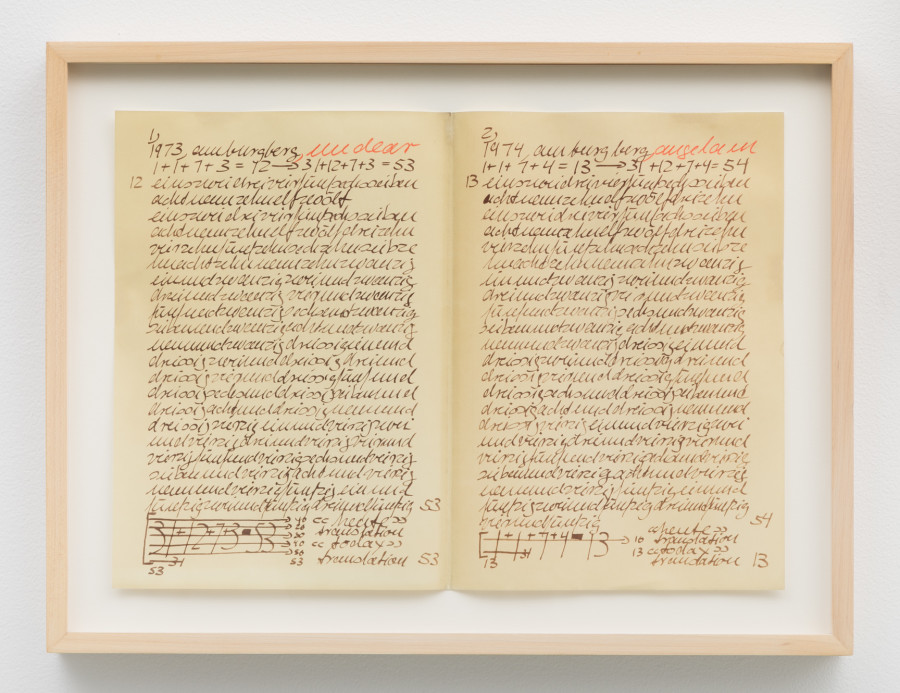 1)
1973, am burgberg,
1+1+7+3 = 12 → 31+12+7+3 = 53
12 einszweidreivierfünfsechssieben
achtneunzehnelfzwölf
einszweidreivierfünfsechssieben
achtneunzehnelfzwölfdreizehn
vierzehnfünfzehnsechzehnsiebze
hnachtzehnneunzehnzwanzig
einundzwanzigzweiundzwanzig
dreiundzwanzigvierundzwanzig
fünfundzwanzigsechsundzwanzig
siebenundzwanzigachtundzwanzig
neunundzwanzigdreissigeinund
dreissigzweiunddreissigdreiund
dreissigvierunddreissigfünfund
dreissigsechsunddreissigsiebenund
dreissigachtunddreissigneunund
dreissigvierzigeinundvierzigzwei
undvierzigdreiundvierzigvierund
vierzigfünfundvierzigsechsundvierzig
siebenundvierzigachtundvierzig
neunundvierzigfünfzigeinund
fünfzigzweiundfünfzigdreiundfünfzig 53
«heute»
translation
«todax»
53 translation 53
31
53
2)
1974, am burgberg,
1+1+7+4 = 13 → 31+12+7+4 = 54
13 einszweidreivierfünfsechssieben
achtneunzehnelfzwölfdreizehn
einszweidreivierfünfsechssieben
achtneunzehnelfzwölfdreizehn
vierzehnfünfzehnsechzehnsiebze
hnachtzehnneunzehnzwanzig
einundzwanzigzweiundzwanzig
dreiundzwanzigvierundzwanzig
fünfundzwanzigsechsundzwanzig
siebenundzwanzigachtundzwanzig
neunundzwanzigdreissigeinund
dreissigzweiunddreissigdreiund
dreissigvierunddreissigfünfund
dreissigsechsunddreissigsiebenund
dreissigachtunddreissigneunund
dreissigvierzigeinundvierzigzwei
undvierzigdreiundvierzigvierund
vierzigfünfundvierzigsechsundvierzig
siebenundvierzigachtundvierzig
neunundvierzigfünfzigeinund
fünfzigzweiundfünfzigdreiundfünfzig
vierundfünfzig 54
«heute»
1+1+7+4=13 → 10 translation
13 «todax»
translation 13
31
13